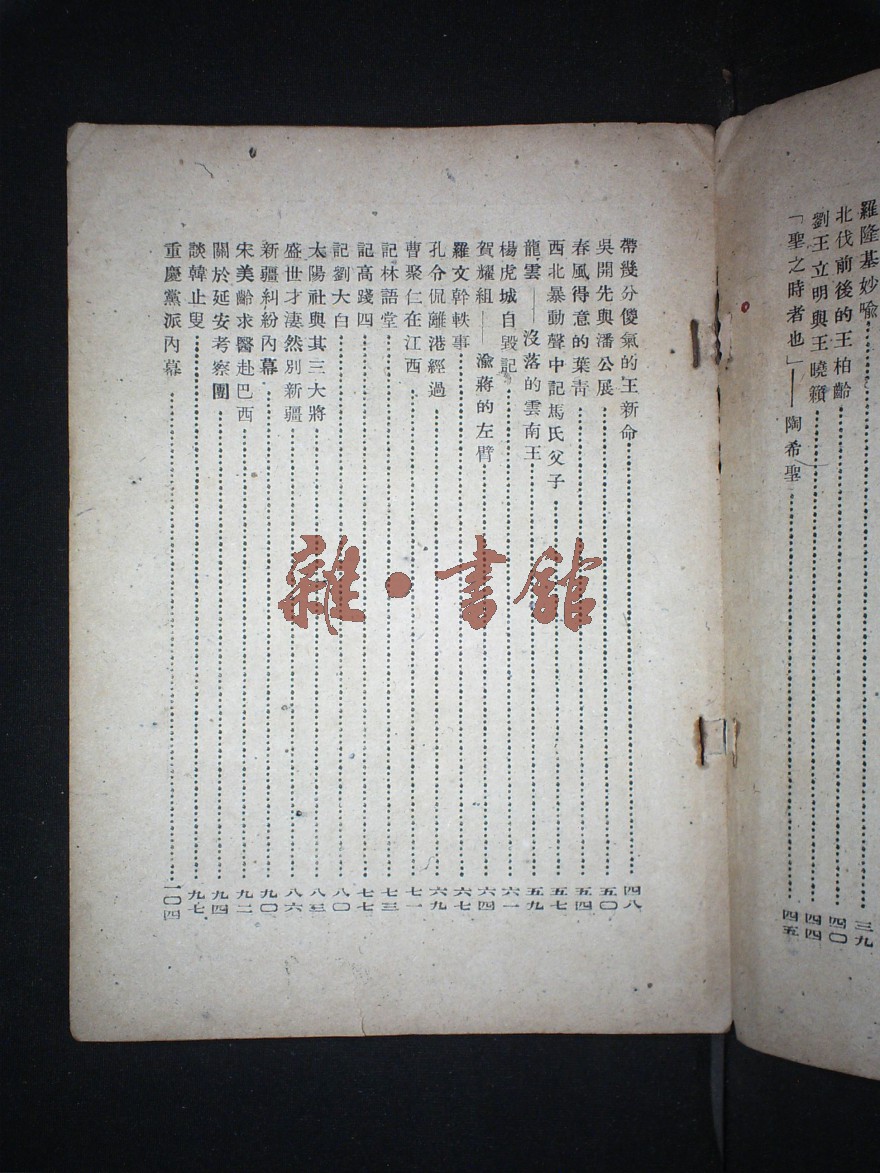 羅隆基妙喻……三九
北伐前後的王柏齡……四〇
劉王立明與王曉籟……四四
「聖之時者也」——陶希聖……四五
帶幾分傻氣的王新命……四八
吳開先與潘公展……五〇
春風得意的葉青……五四
西北暴動聲中記馬氏父子……五七
龍雲——沒落的雲南王……五九
楊虎城自毀記……六一
賀耀組——渝蔣的左臂……六四
羅文幹軼事……六七
孔令侃離港經過……六九
曹聚仁在江西……七一
記林語堂……七三
記高踐四……七七
記劉大白……八〇
太陽社與其三大將……八三
盛世才淒然別新疆……八六
新疆糾紛內幕……九〇
宋美齡求醫赴巴西……九二
關於延安考察團……九四
談韓止叟……九七
重慶黨派內幕……一〇四
雜·書館